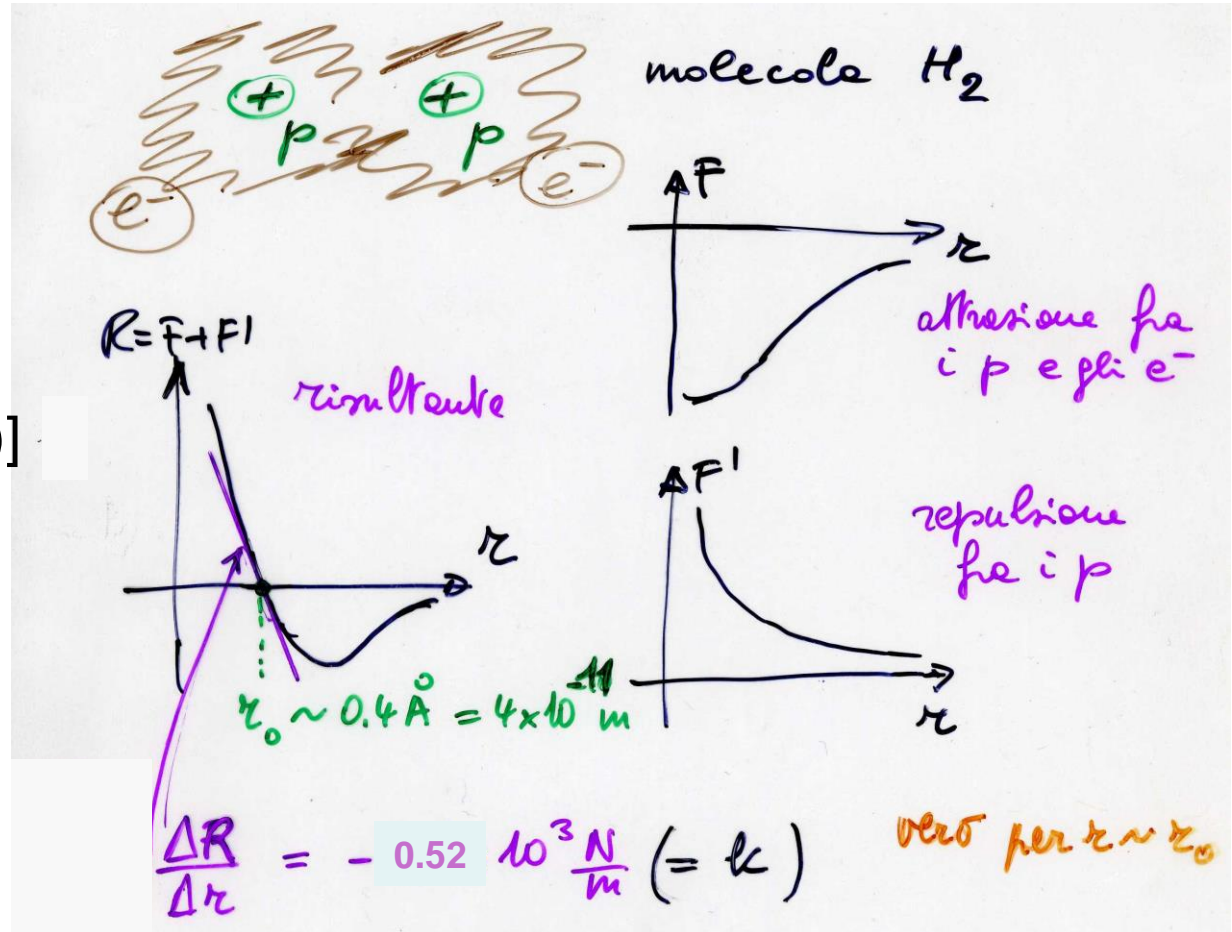 molecola H₂
+ +
p p
e⁻ e⁻
F
r
attrazione fra
i p e gli e⁻
R = F + F'
risultante
)]
r
r₀ ~ 0.4 Å = 4x10⁻¹¹ m
F'
repulsione
fra i p
r
ΔR/Δr = - 0.52 10³ N/m (= k)
vero per r ~ r₀